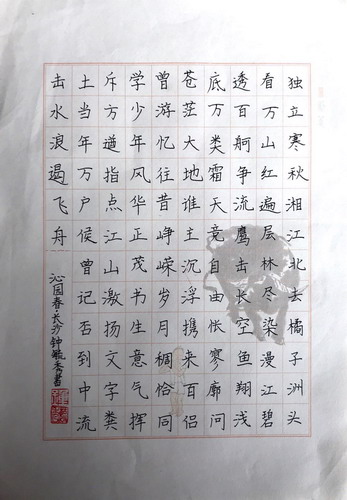 独立寒秋湘江北去橘子洲头
看万山红遍层林尽染漫江碧
透百舸争流鹰击长空鱼翔浅
底万类霜天竞自由怅寥廓问
苍茫大地谁主沉浮携来百侣
曾游忆往昔峥嵘岁月稠恰同
学少年风华正茂书生意气挥
斥方遒指点江山激扬文字粪
土当年万户侯曾记否到中流
击水浪遏飞舟
沁园春长沙钟毓秀书